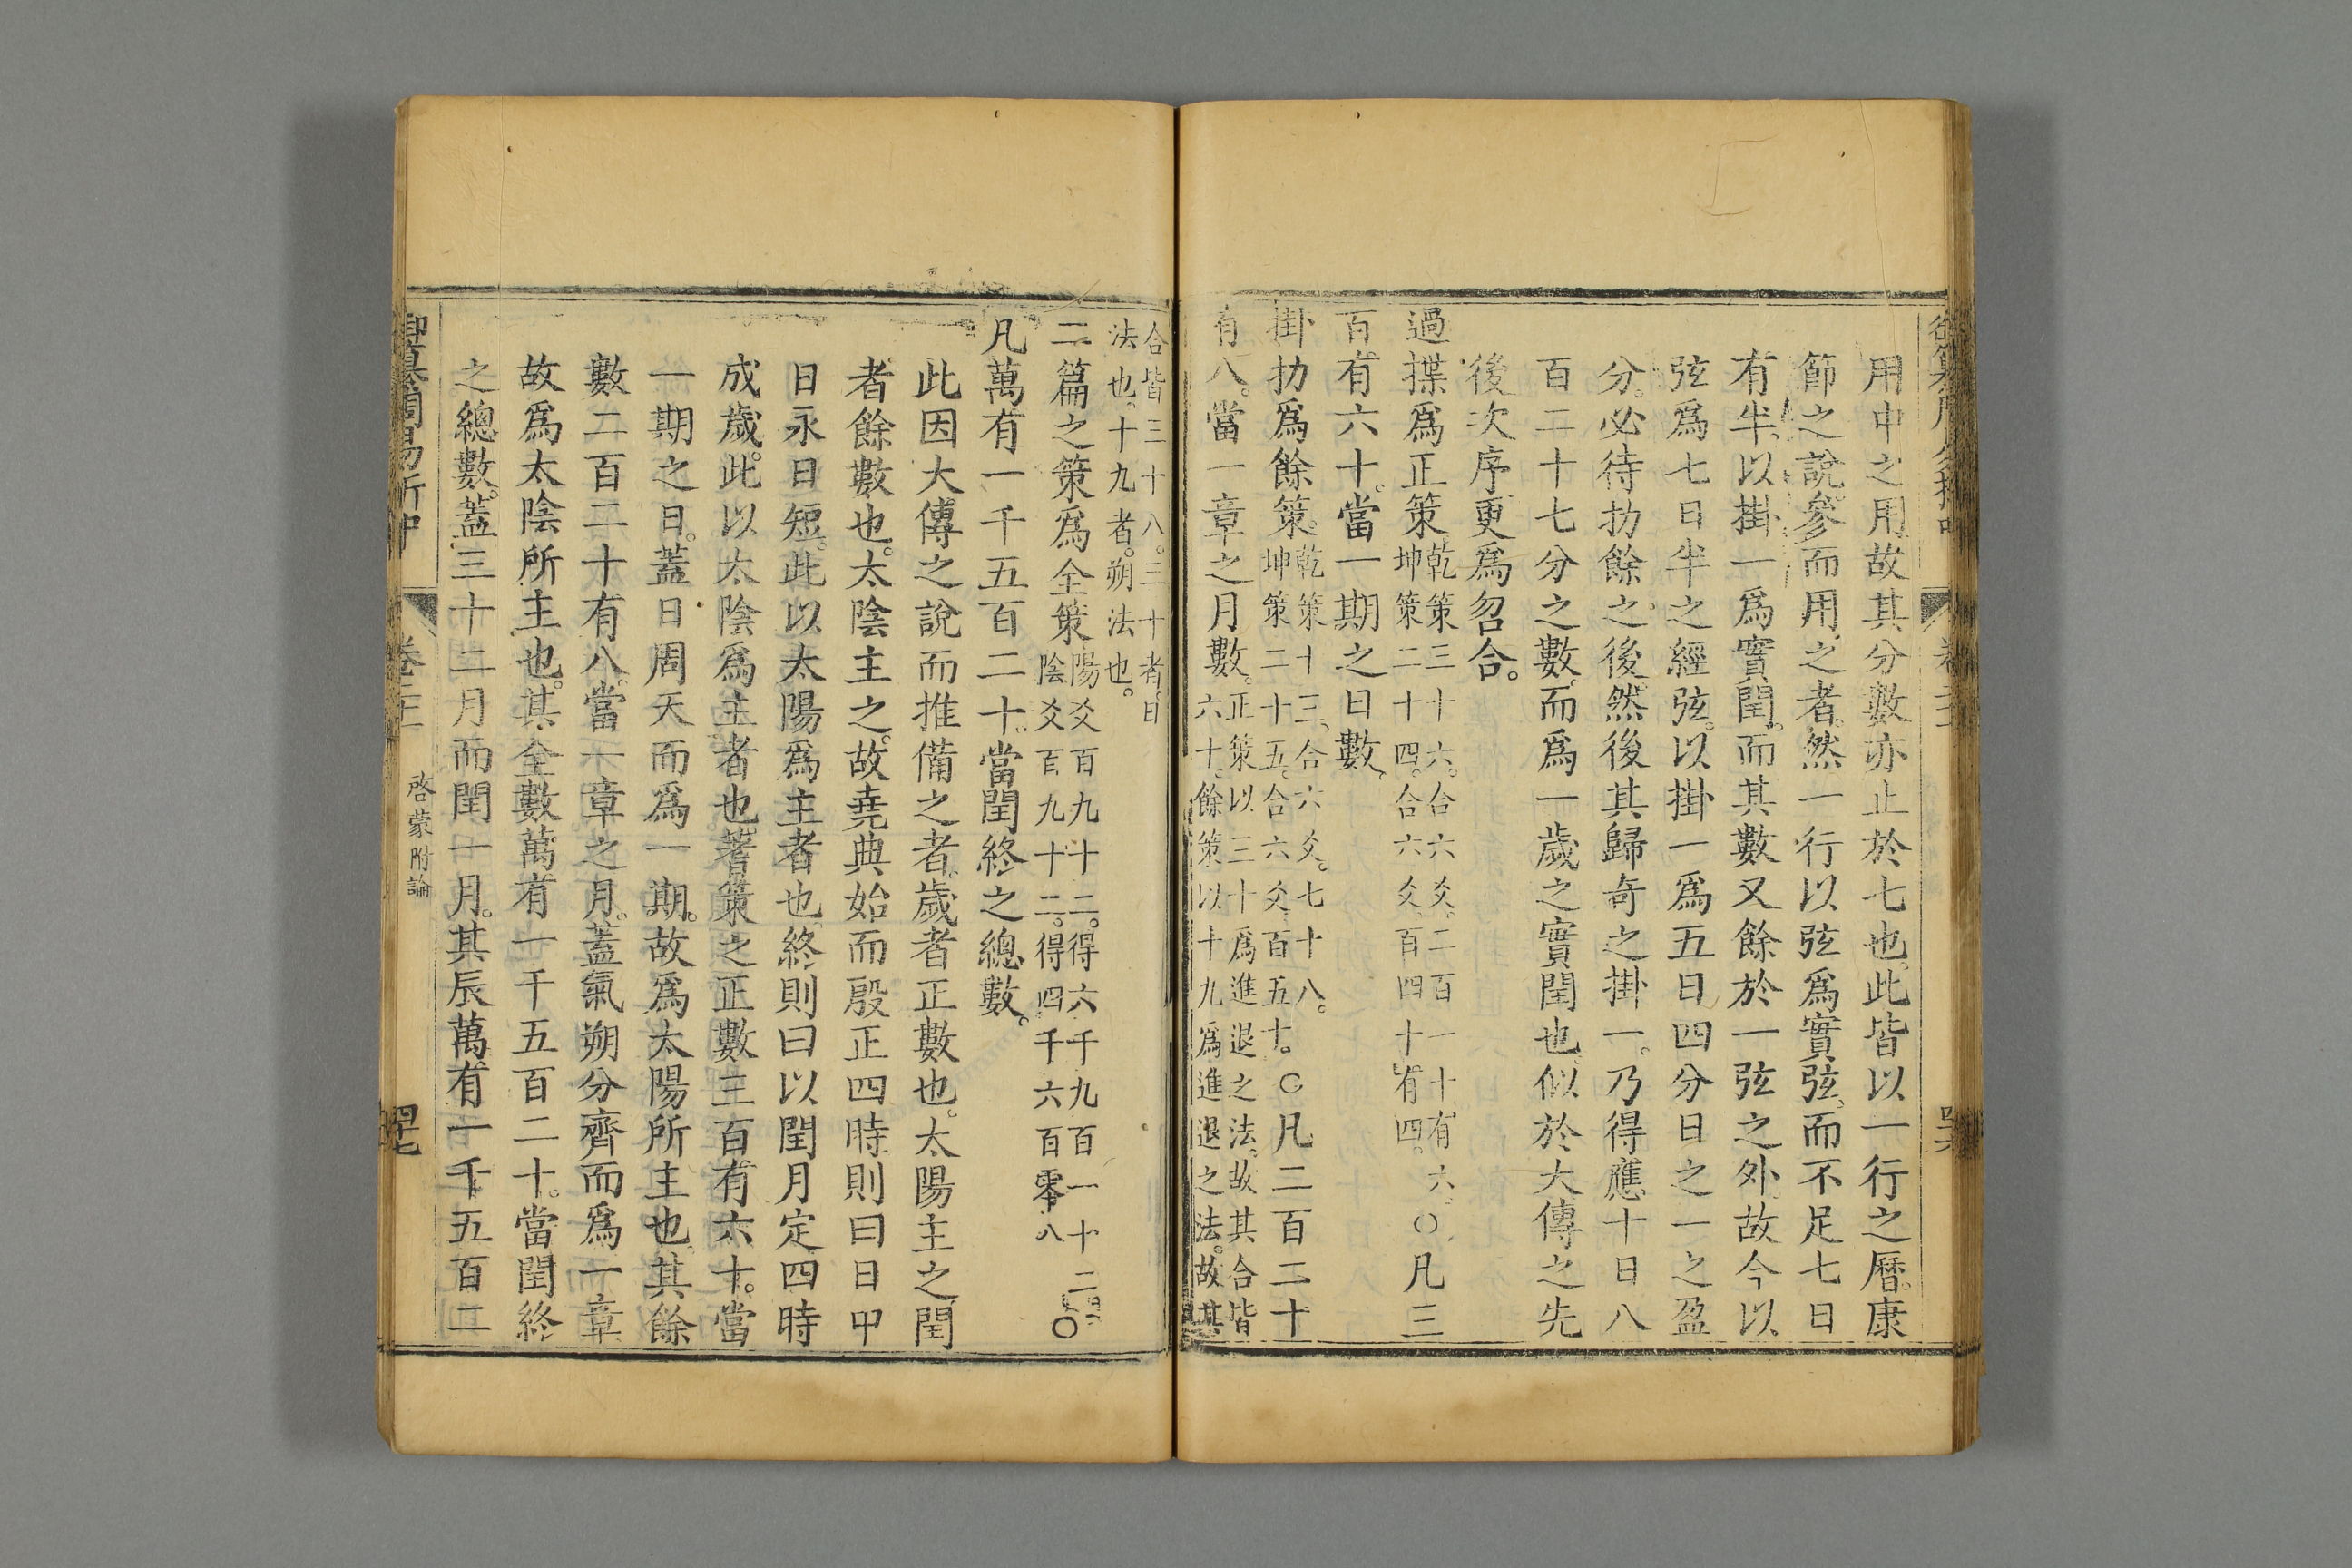 用中之用故其分數亦止於七也。此皆以一行之曆。康
節之說。參而用之者。然一行以弦爲實弦。而不足七日
有半。以掛一爲實閏。而其數又餘於一弦之外。故今以
弦爲七日半之經弦。以掛一爲五日四分日之一之盈
分。必待扐餘之後。然後其歸奇之掛一。乃得應十日八
百二十七分之數。而爲一歲之實閏也。似於大傳之先
後次序更爲脗合。
過揲爲正策乾策三十六。合六爻。二百一十有六。坤策二十四。合六爻。百四十有四。○凡三
百有六十。當一期之日數。
掛扐爲餘策。乾策十三。合六爻。七十八。坤策二十五。合六爻。百五十。○凡二百二十
有八。當一章之月數。正策以三十爲進退之法。故其合皆六十。餘策以十九爲進退之法。故其
合皆三十八。三十者。日法也。十九者。朔法也。
二篇之策爲全策陽爻百九十二。得六千九百一十二。陰爻百九十二。得四千六百零八○
凡萬有一千五百二十。當閏終之總數。
此因大傳之說而推備之者。歲者正數也。太陽主之。閏
者餘數也。太陰主之。故堯典始而殷正四時則曰日中
日永日短。此以太陽爲主者也。終則曰以閏月定四時
成歲。此以太陰爲主者也。蓍策之正數三百有六十。當
一期之日。蓋日周天而爲一期。故爲太陽所主也。其餘
數二百二十有八。當一章之月。蓋氣朔分齊而爲一章
故爲太陰所主也。其全數萬有一千五百二十。當閏終
之總數。蓋三十二月而閏一月。其辰萬有一千五百二
御纂周易折中 啓蒙附論